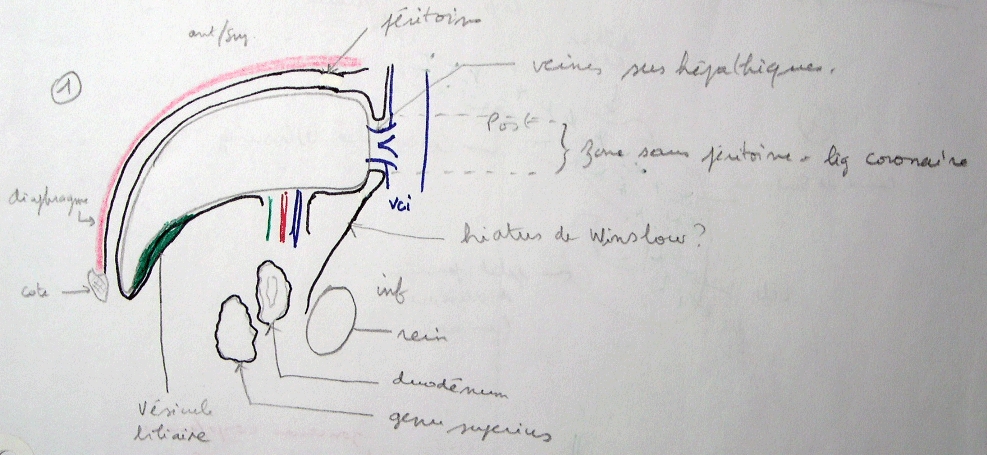 ant/sup.
péritoine
1
veines sus hépathiques.
Post
zone sans péritoine = lig coronaire
diaphragme
vci
hiatus de Winslow?
cote
inf
rein
duodénum
genu superius
Vésicule
biliaire